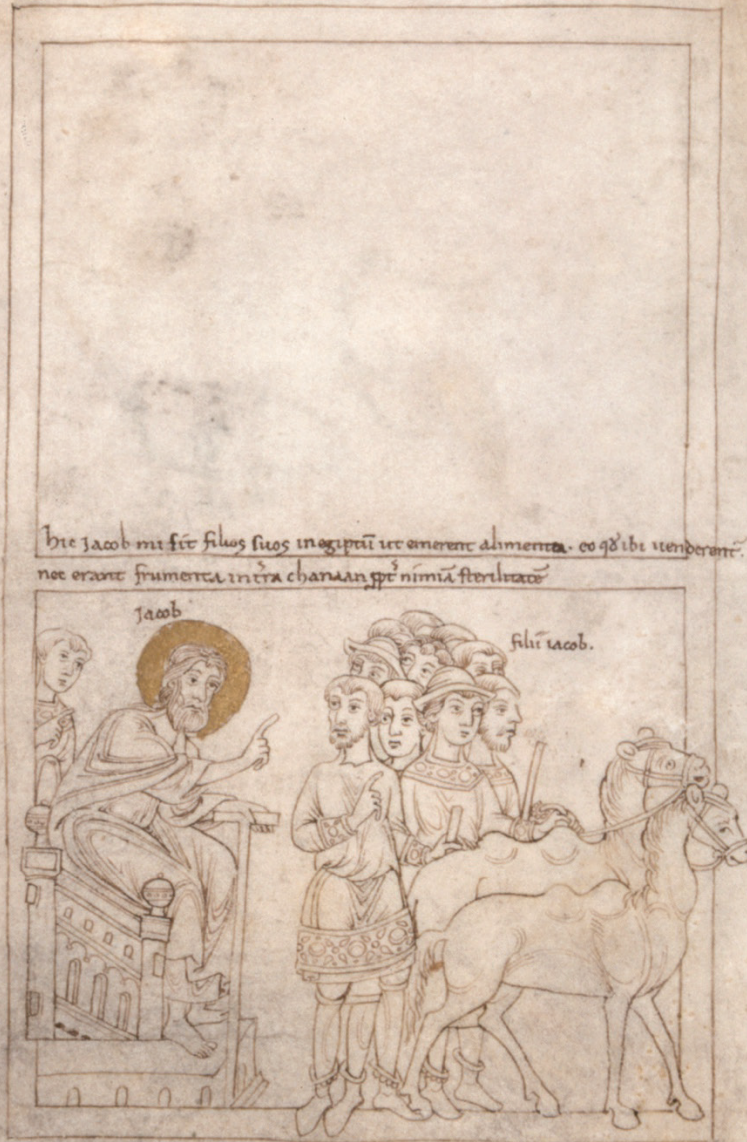 hic Jacob misit filios suos in egiptū ut emerent alimenta. eo qđ ibi uenderent̄.
nec erant frumenta in t̄ra chanaan ꝓpt̄ nimiā sterilitatē
Jacob
filii iacob.